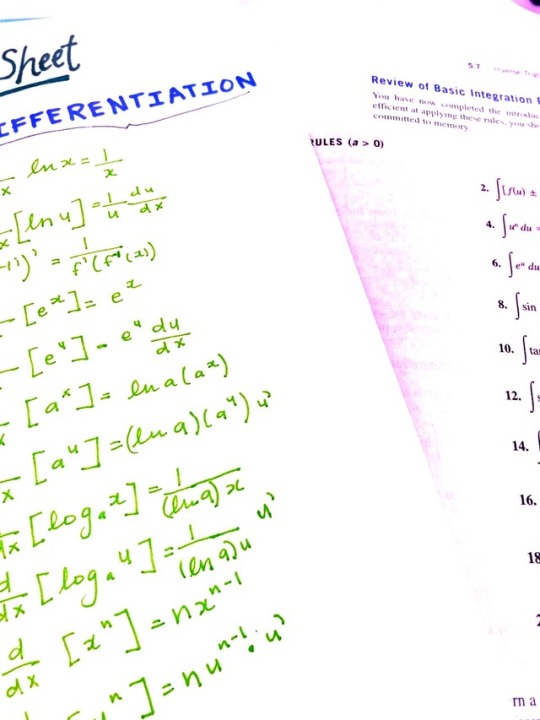 Sheet
IFFERENTIATION
x ln x = 1/x
x [ln u] = 1/u du/dx
-1)' = 1/f'(f⁻¹(x))
[eˣ] = eˣ
[eᵘ] = eᵘ du/dx
x [aˣ] = ln a (aˣ)
x [aᵘ] = (ln a)(aᵘ) u'
dx [logₐ x] = 1/(ln a) x
d/dx [logₐ u] = 1/(ln a) u u'
d/dx [xⁿ] = nxⁿ⁻¹
[uⁿ] = nuⁿ⁻¹ · u'
5.7 Inverse Trig
Review of Basic Integration R
You have now completed the introduc
efficient at applying these rules, you sho
committed to memory.
RULES (a > 0)
2. ∫[f(u) ±
4. ∫uⁿ du =
6. ∫eᵘ du
8. ∫sin
10. ∫ta
12. ∫s
14. ∫
16.
18
2
rn a